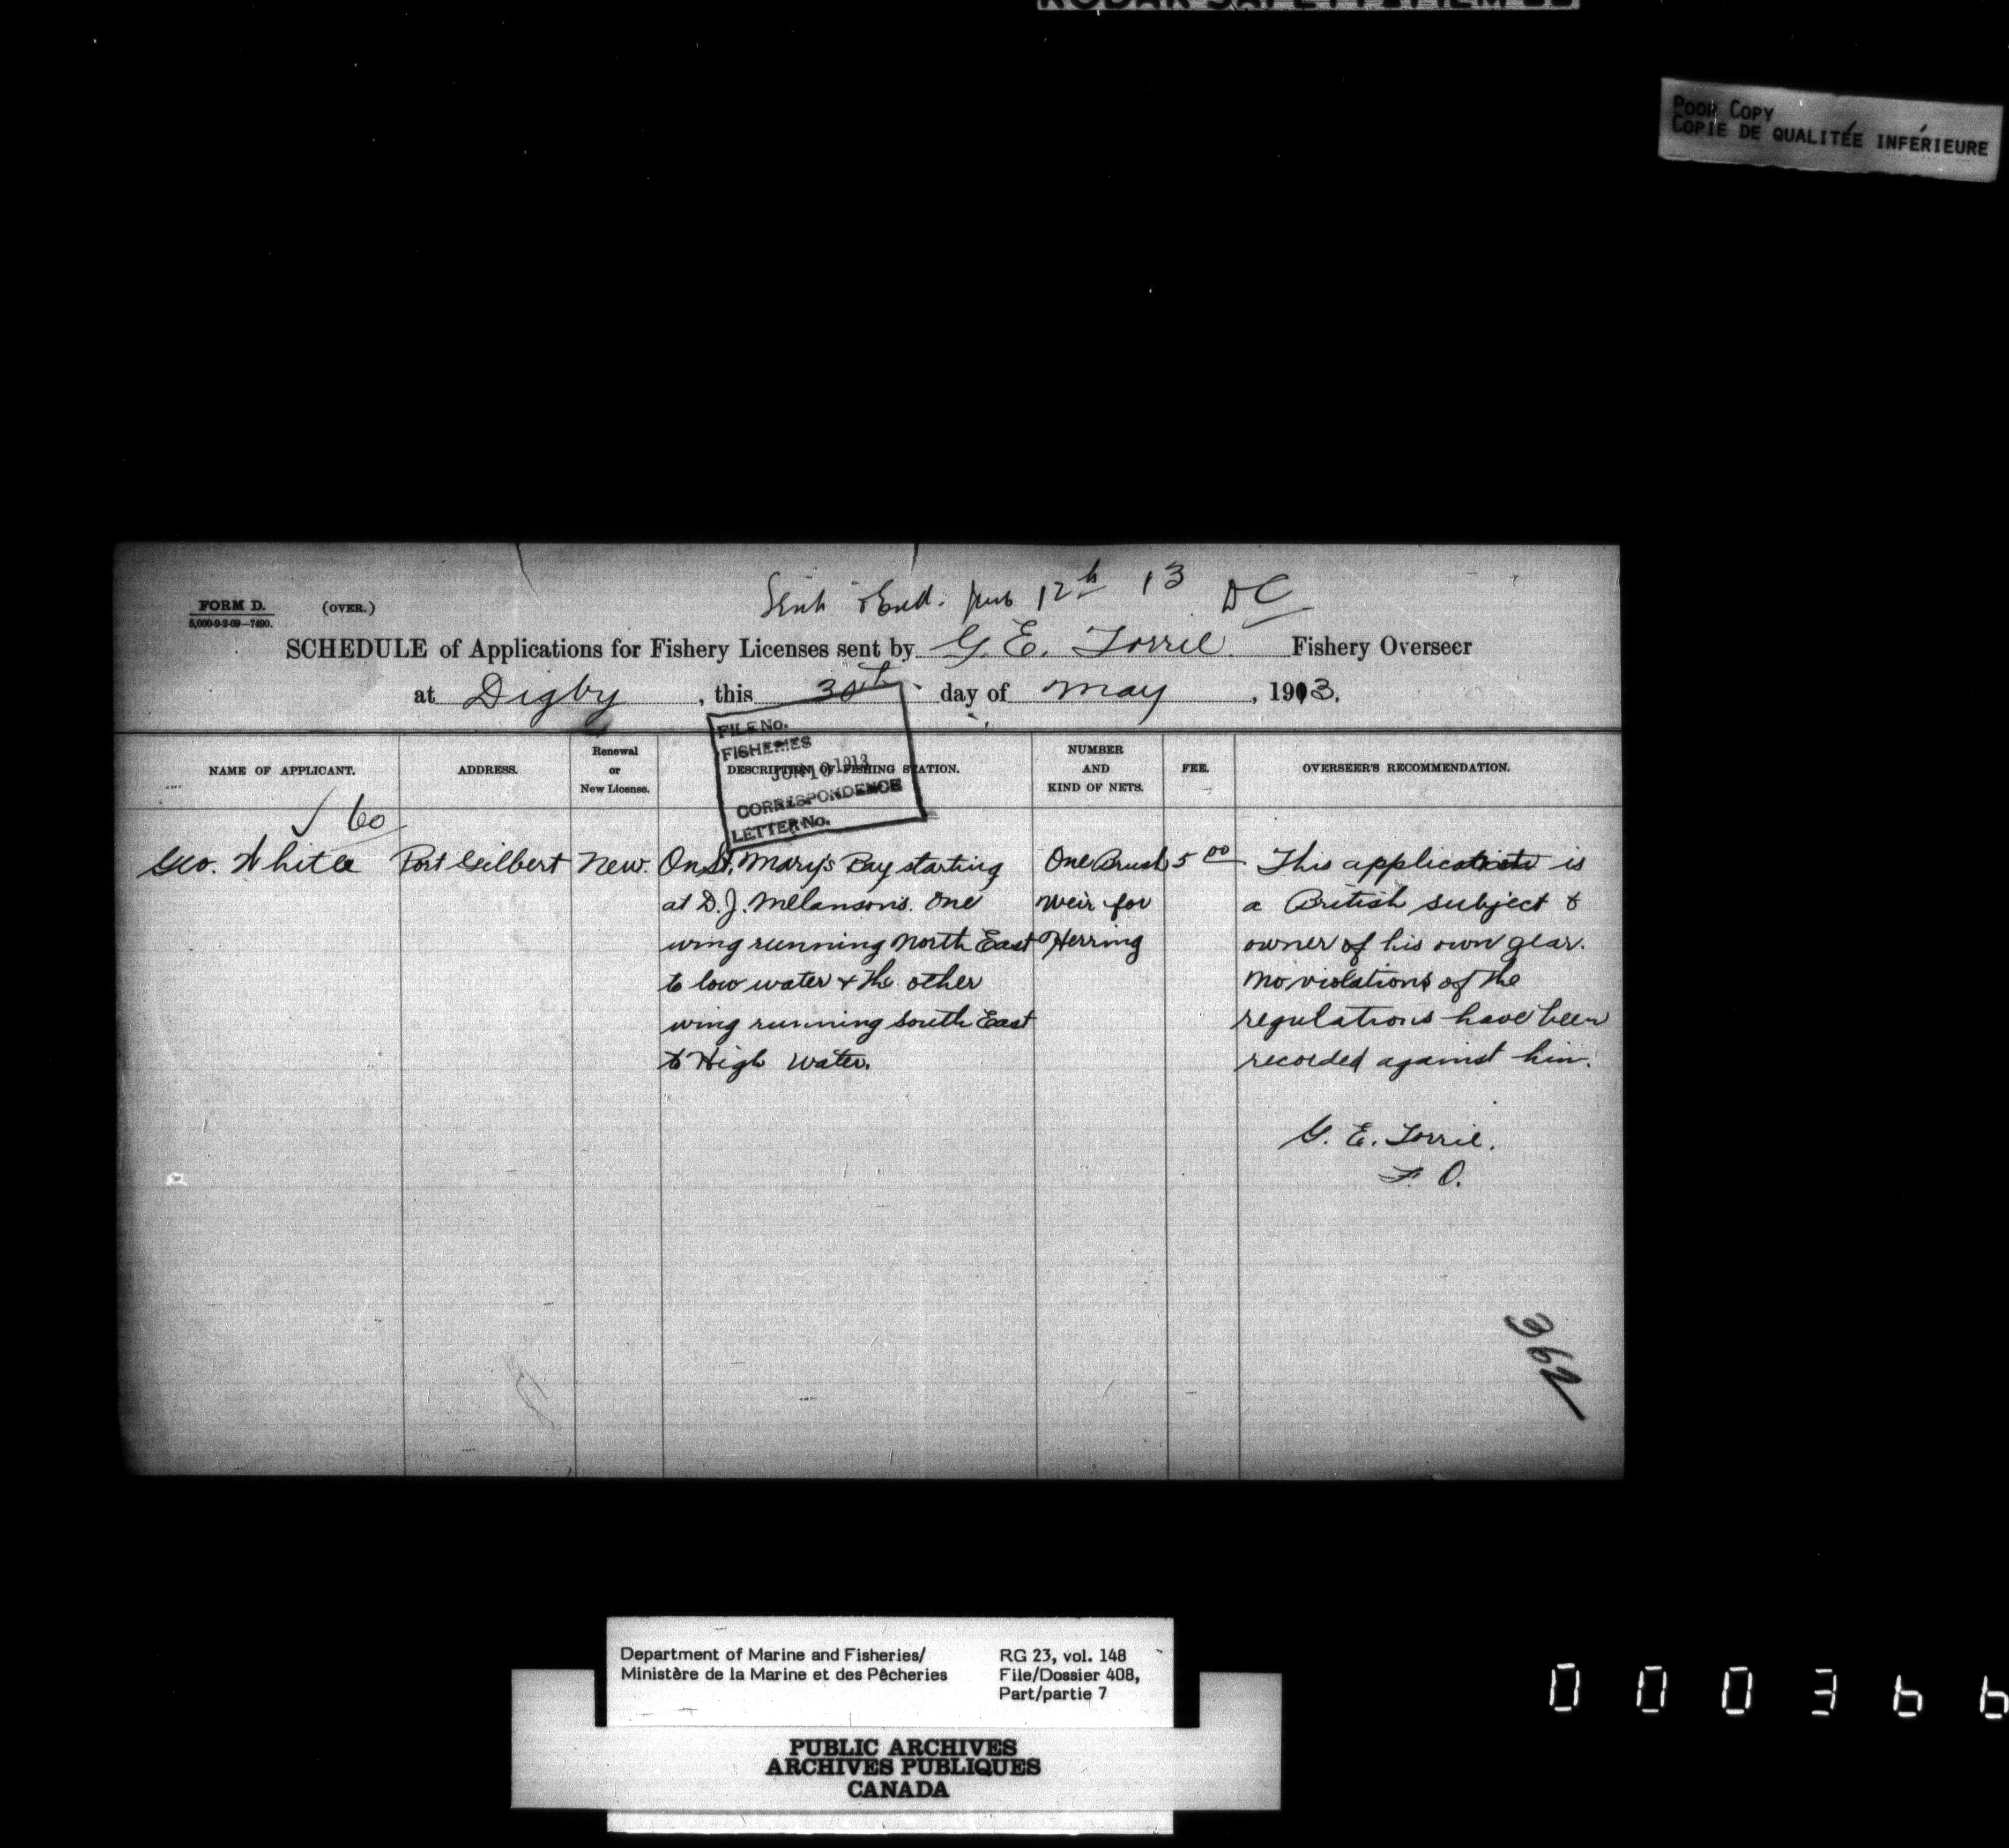 KODAK SAFETY FILM
POOR COPY
COPIE DE QUALITÉE INFÉRIEURE
FORM D.
5,000-9-2-09—7490.
(OVER.)
12th 13 DC
SCHEDULE of Applications for Fishery Licenses sent by G. E. Torrie. Fishery Overseer
at Digby, this 30th day of May, 1913.
FILE No.
FISHERIES
JUN 10 1913
CORRESPONDENCE
LETTER No.
NAME OF APPLICANT.
ADDRESS.
Renewal
or
New License.
DESCRIPTION OF FISHING STATION.
NUMBER
AND
KIND OF NETS.
FEE.
OVERSEER'S RECOMMENDATION.
60
Geo. White
Port Gilbert
New.
On St. Mary's Bay starting
at D. J. Melanson's. One
wing running North East
to low water & the other
wing running South East
to High Water.
One Brush
Weir for
Herring
5 00
This applicant is
a British subject &
owner of his own gear.
No violations of the
regulations have been
recorded against him.
G. E. Torrie.
F. O.
362
Department of Marine and Fisheries/
Ministère de la Marine et des Pêcheries
RG 23, vol. 148
File/Dossier 408,
Part/partie 7
PUBLIC ARCHIVES
ARCHIVES PUBLIQUES
CANADA
000366